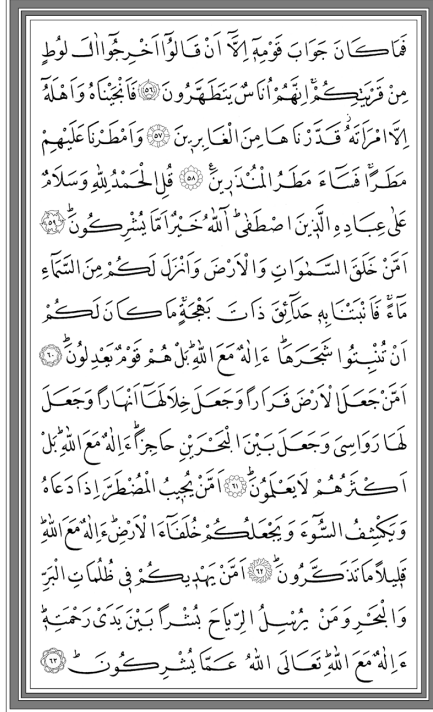 فَمَا كَانَ جَوَابَ قَوْمِهٖٓ اِلَّٓا اَنْ قَالُٓوا اَخْرِجُٓوا اٰلَ لُوطٍ
مِنْ قَرْيَتِكُمْۚ اِنَّهُمْ اُنَاسٌ يَتَطَهَّرُونَ ﴿٥٦﴾ فَاَنْجَيْنَاهُ وَاَهْلَهُٓ
اِلَّا امْرَاَتَهُۘ قَدَّرْنَاهَا مِنَ الْغَابِرٖينَ ﴿٥٧﴾ وَاَمْطَرْنَا عَلَيْهِمْ
مَطَرًاۚ فَسَٓاءَ مَطَرُ الْمُنْذَرٖينَ۟ ﴿٥٨﴾ قُلِ الْحَمْدُ لِلّٰهِ وَسَلَامٌ
عَلٰى عِبَادِهِ الَّذٖينَ اصْطَفٰىۜ آٰللّٰهُ خَيْرٌ اَمَّا يُشْرِكُونَۜ ﴿٥٩﴾
اَمَّنْ خَلَقَ السَّمٰوَاتِ وَالْاَرْضَ وَاَنْزَلَ لَكُمْ مِنَ السَّمَٓاءِ
مَٓاءًۚ فَاَنْبَتْنَا بِهٖ حَدَٓائِقَ ذَاتَ بَهْجَةٍۚ مَا كَانَ لَكُمْ
اَنْ تُنْبِتُوا شَجَرَهَاۜ ءَاِلٰهٌ مَعَ اللّٰهِۜ بَلْ هُمْ قَوْمٌ يَعْدِلُونَۜ ﴿٦٠﴾
اَمَّنْ جَعَلَ الْاَرْضَ قَرَارًا وَجَعَلَ خِلَالَهَٓا اَنْهَارًا وَجَعَلَ
لَهَا رَوَاسِيَ وَجَعَلَ بَيْنَ الْبَحْرَيْنِ حَاجِزًاۜ ءَاِلٰهٌ مَعَ اللّٰهِۜ بَلْ
اَكْثَرُهُمْ لَا يَعْلَمُونَۜ ﴿٦١﴾ اَمَّنْ يُجٖيبُ الْمُضْطَرَّ اِذَا دَعَاهُ
وَيَكْشِفُ السُّٓوءَ وَيَجْعَلُكُمْ خُلَفَٓاءَ الْاَرْضِۜ ءَاِلٰهٌ مَعَ اللّٰهِۜ
قَلٖيلًا مَا تَذَكَّرُونَۜ ﴿٦٢﴾ اَمَّنْ يَهْدٖيكُمْ فٖي ظُلُمَاتِ الْبَرِّ
وَالْبَحْرِ وَمَنْ يُرْسِلُ الرِّيَاحَ بُشْرًا بَيْنَ يَدَيْ رَحْمَتِهٖۜ
ءَاِلٰهٌ مَعَ اللّٰهِۜ تَعَالَى اللّٰهُ عَمَّا يُشْرِكُونَۜ ﴿٦٣﴾